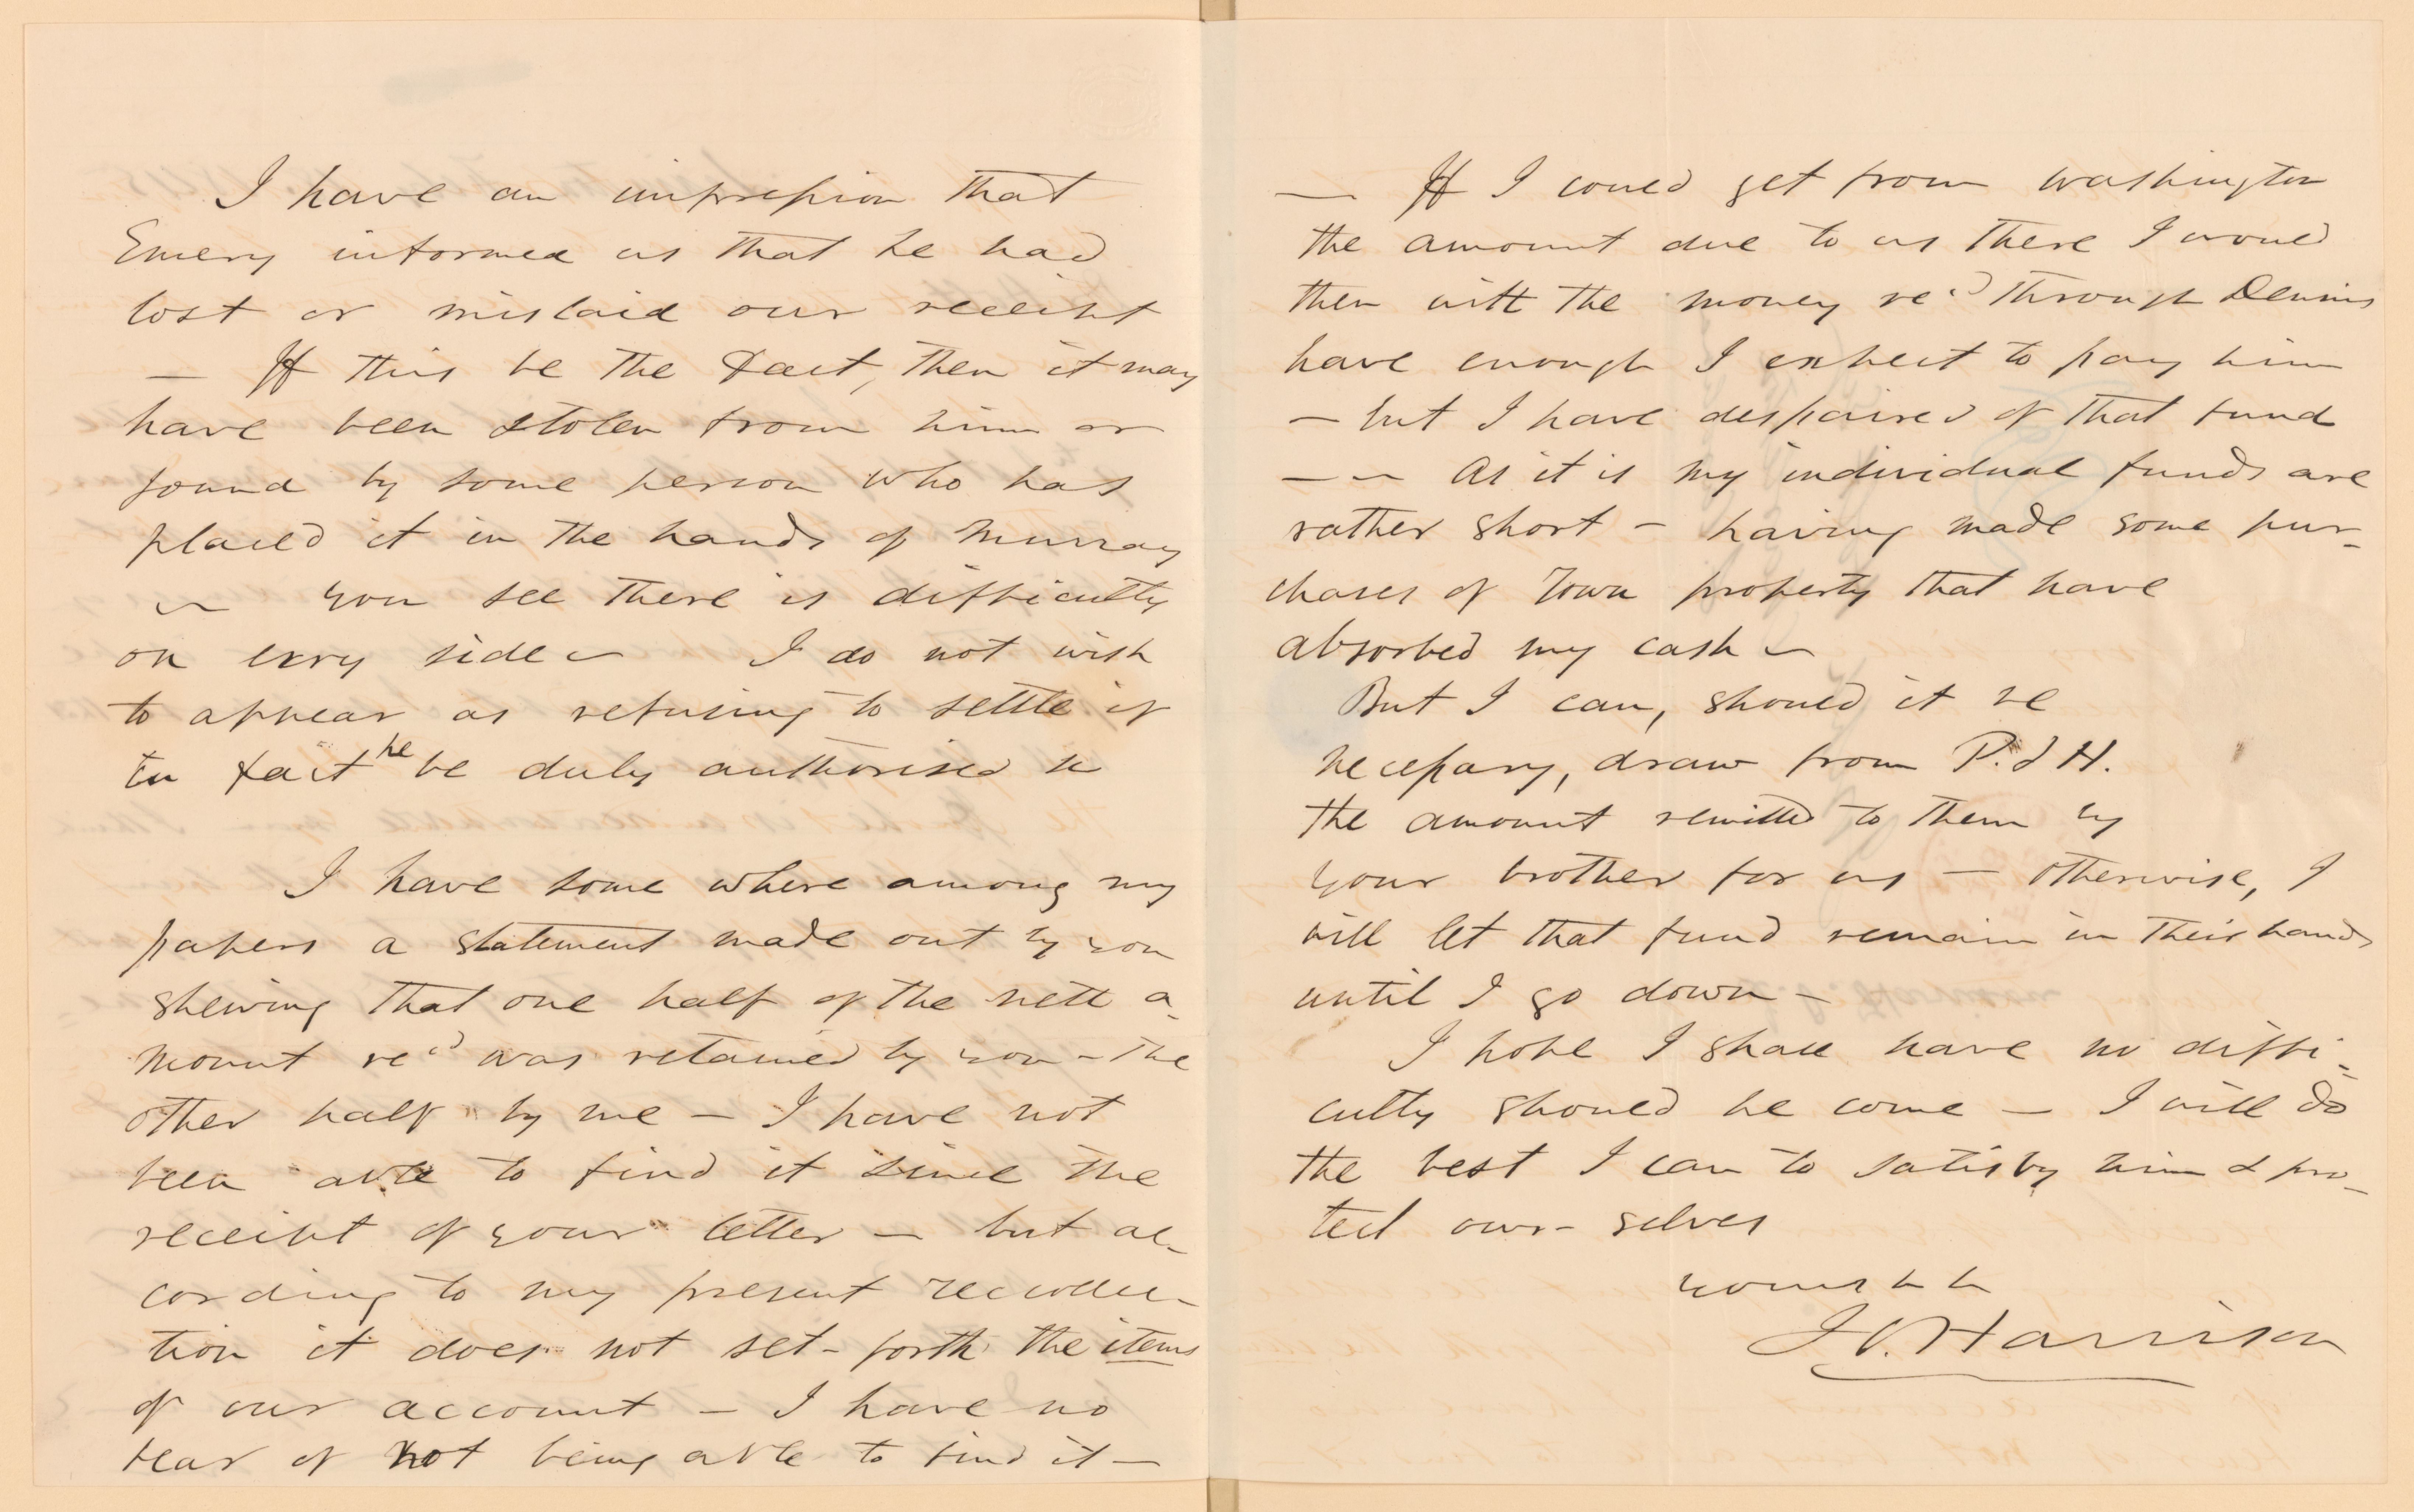 I have an impression that
Emery informed us that he had
lost or mislaid our receipt
— If this be the fact, then it may
have been stolen from him or
found by some person who has
placed it in the hands of Murray
— you see there is difficulty
on every side — I do not wish
to appear as refusing to settle if
in fact he be duly authorised
I have some where among my
papers a statement made out by you
shewing that one half of the nett a-
mount recd was retained by you – the
other half by me – I have not
been able to find it since the
receipt of your letter — but ac-
cording to my present recollec-
tion it does not set-forth the items
of our account – I have no
fear of not being able to find it —
— If I could get from Washington
the amount due to us there I would
then with the money recd through Dennis
have enough I expect to pay him
– but I have despaired of that fund
—— As it is my individual funds are
rather short – having made some pur-
chases of Town property that have
absorbed my cash –
But I can, should it be
necessary, draw from P. & H.
the amount remitted to them by
your brother for us — otherwise, I
will let that fund remain in their hands
until I go down –
I hope I shall have no diffi-
culty should he come — I will do
the best I can to satisfy him & pro-
tect our-selves
yours
J. Harrison